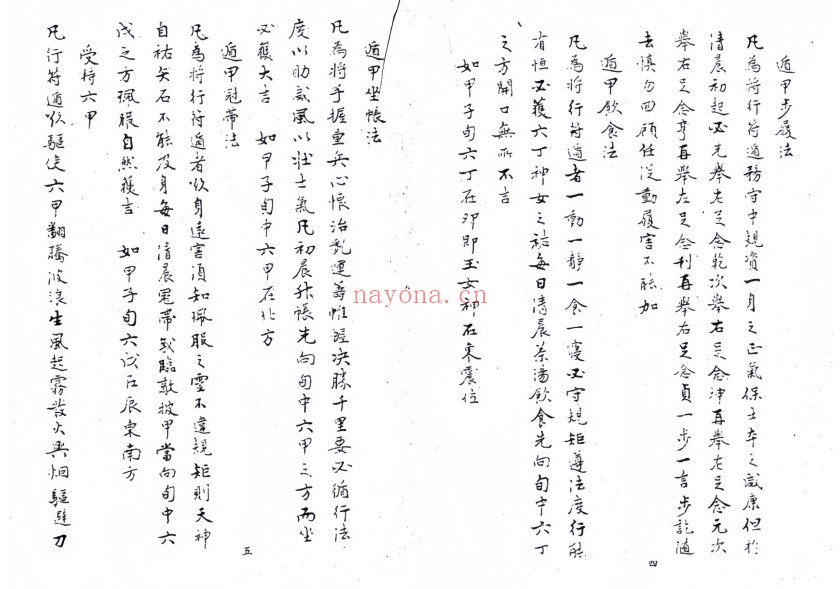 遁甲步履法
凡為將行符遁務守中規資一身之正氣保士卒之康但於
清晨初起必先舉左足念乾次舉右足念坤再舉左足念元次
舉右足念亨再舉左足念利再舉右足念貞一步一言步訖隨
去慎勿回顧任從動履害不能加
遁甲飲食法
凡為將行符遁者一動一靜一食一寢必守規矩遵法度行能
有恒必獲六丁神女之祐每日清晨茶湯飲食先向旬中六丁
之方開口無所不吉
如甲子旬六丁在卯即玉女神在東震位
四
遁甲坐帳法
凡為將手握重兵心懷治亂運籌帷幄決勝千里要必循行法
度以助威風以壯士氣凡初晨升帳先向旬中六甲之方而坐
必獲大吉 如甲子旬中六甲在北方
遁甲冠帶法
凡為將行符遁者欲身遠害須知珮服之靈不違規矩則天神
自祐矢石不能及身每日清晨冠帶或臨敵披甲當向旬中六
戊之方珮服自然獲吉 如甲子旬六戊在辰東南方
五
受持六甲
凡行符遁欲驅使六甲翻騰波浪生風起霧發火興烟驅避刀
nayona.cn